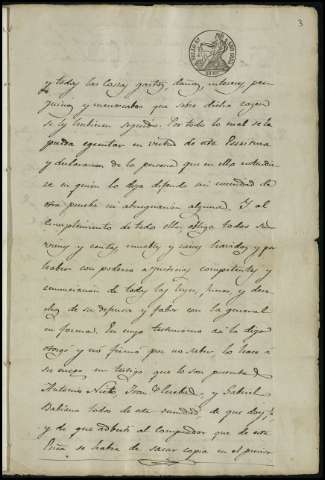 3
y todas las costas, gastos, daños, intereses, per-
juicios y menoscabos que sobre dicha cosa
se le hubieren seguido. Por todo lo cual se le
pueda egecutar en virtud de esta Escritura
y declaracion de la persona que en ella
se en quien lo deja diferido sin necesidad de
otra prueba ni aberiguacion alguna. Y al
cumplimiento de todo ello obliga todos sus
vienes y rentas muebles y raices havidos y por
haber con poderio a justicias competentes y
renunciacion de todas las leyes, fueros y dere-
chos de su defensa y fabor con la general
en forma. En cuyo testimonio asi lo digo
otorgó y no firmó por no saber, lo hace á
su ruego un testigo que lo son presentes
Antonio Nieto, Juan y Gabriel
todos de esta vecindad de que doy fe,
y de que advertí al comprador que de esta
se habia de sacar copia en el